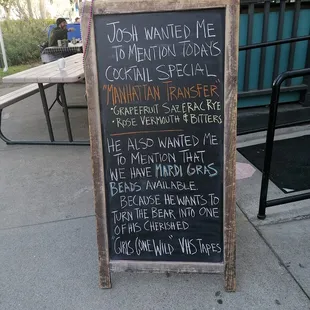 Josh wanted me
to mention todays
cocktail special
"Manhattan Transfer"
• Grapefruit Sazerac Rye
• Rose Vermouth & Bitters
He also wanted me
to mention that
we have Mardi Gras
beads available.
Because he wants to
turn the Bear into one
of his cherished
"Girls Gone Wild" VHS tapes